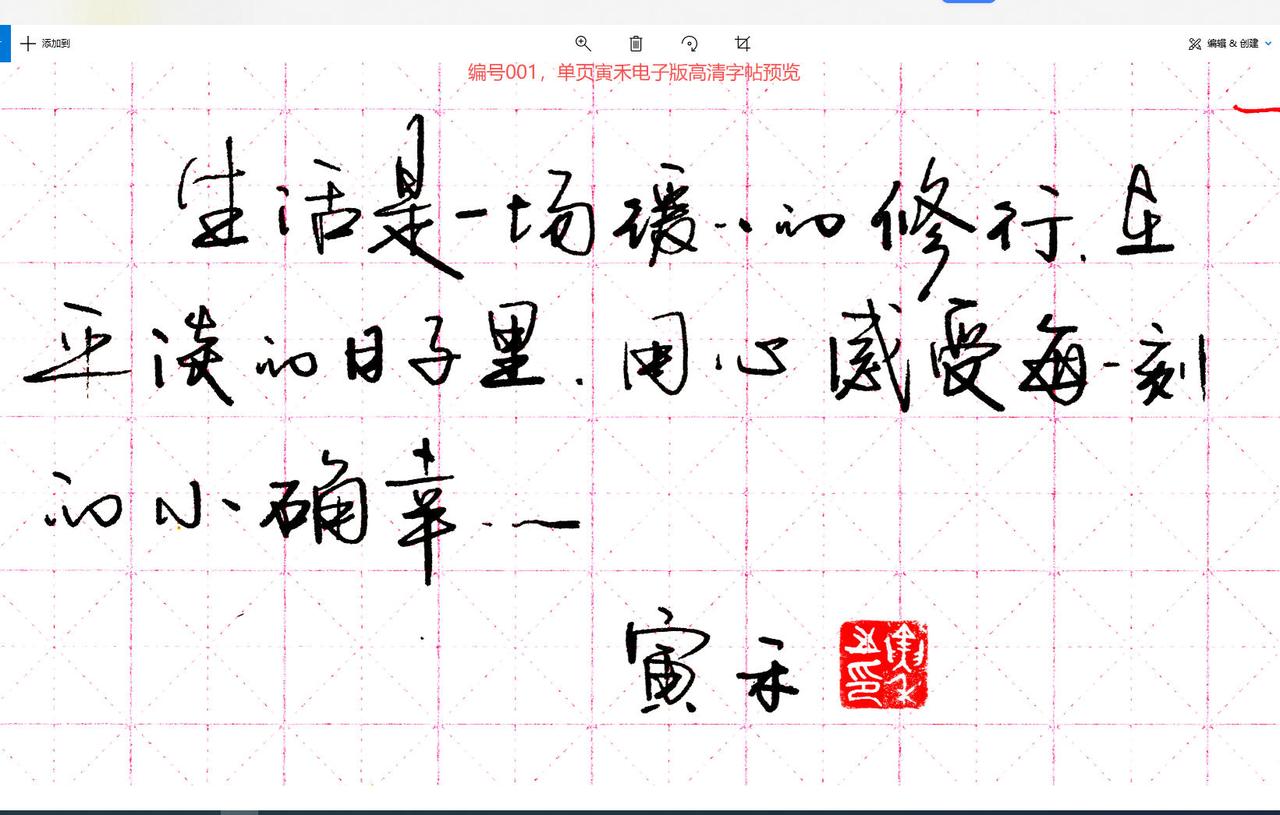 添加到
编辑 & 创建
编号001，单页寅禾电子版高清字帖预览
生活是一场缓、、的修行.在
平淡的日子里.用心感受每一刻
的小确幸……
寅禾